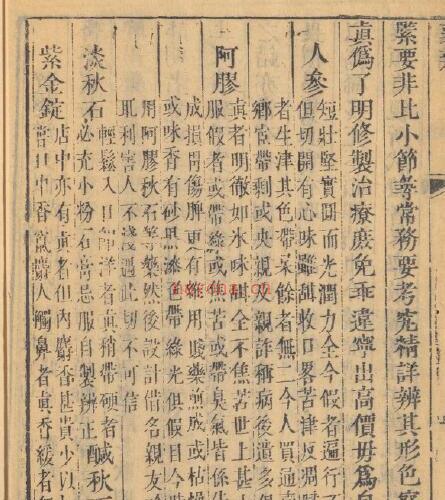 緊要非比小節嘗當務要考究精詳辨其形色
真偽了明修製治療庶免乖違寧出高價毋爲
人參
短壯堅實圓而光潤力全今假者遍行
但切開有心味雖甜收口畧苦津反凋
者生津其色帶杲餘者無二今人買通
鄉宦帶剩或央親友親詐稱病後遺多
阿膠
真者明徹如氷味甚全不焦苦世上甚
服假者或帶綠或焦苦或帶臭氣皆係
成損胃傷脾更有雜用藥煎成或枯燥
或味香有砂黑漆色帶綠光俱假目今
用阿膠秋石等藥然後設計借名親友
耽利害人不淺遇此切不可信
淡秋石
輕鬆入口即洋者真稍帶硬者
必充小粉石膏忌服自製辨正鹹秋石
紫金錠
店中亦有真者但內麝香甚貴少以
嘗口中香氣人觸鼻者真香緩者